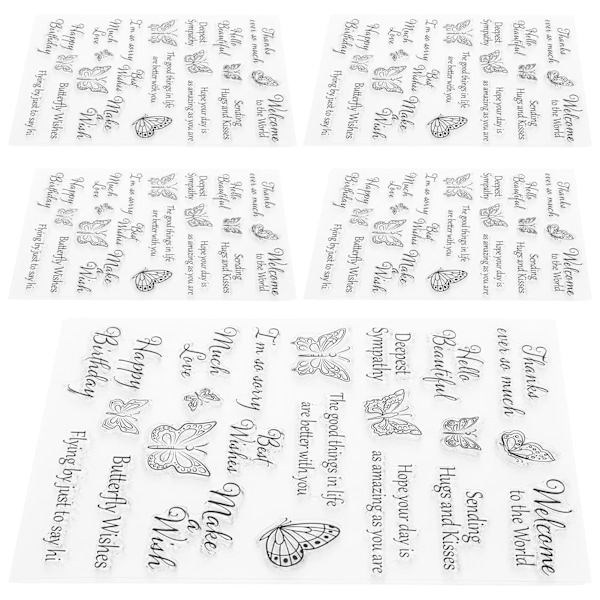 Thanks
ever so much
Welcome
to the World
Hello
Beautiful
Sending
Hugs and Kisses
Deepest
Sympathy
Hope your day is
as amazing as you are
The good things in life
are better with you
I'm so sorry
Best
Wishes
Much
Love
Make
a
Wish
Happy
Birthday
Butterfly Wishes
Flying by just to say hi
Thanks
ever so much
Welcome
to the World
Hello
Beautiful
Sending
Hugs and Kisses
Deepest
Sympathy
Hope your day is
as amazing as you are
The good things in life
are better with you
I'm so sorry
Best
Wishes
Much
Love
Make
a
Wish
Happy
Birthday
Butterfly Wishes
Flying by just to say hi
Thanks
ever so much
Welcome
to the World
Hello
Beautiful
Sending
Hugs and Kisses
Deepest
Sympathy
Hope your day is
as amazing as you are
The good things in life
are better with you
I'm so sorry
Best
Wishes
Much
Love
Make
a
Wish
Happy
Birthday
Butterfly Wishes
Flying by just to say hi
Thanks
ever so much
Welcome
to the World
Hello
Beautiful
Sending
Hugs and Kisses
Deepest
Sympathy
Hope your day is
as amazing as you are
The good things in life
are better with you
I'm so sorry
Best
Wishes
Much
Love
Make
a
Wish
Happy
Birthday
Butterfly Wishes
Flying by just to say hi
Thanks
ever so much
Welcome
to the World
Hello
Beautiful
Sending
Hugs and Kisses
Deepest
Sympathy
Hope your day is
as amazing as you are
The good things in life
are better with you
I'm so sorry
Best
Wishes
Much
Love
Make
a
Wish
Happy
Birthday
Butterfly Wishes
Flying by just to say hi